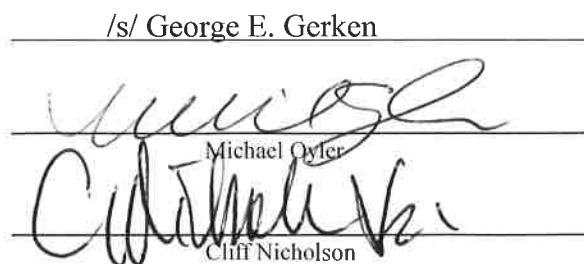 /s/ George E. Gerken
Michael Oyler
Cliff Nicholson